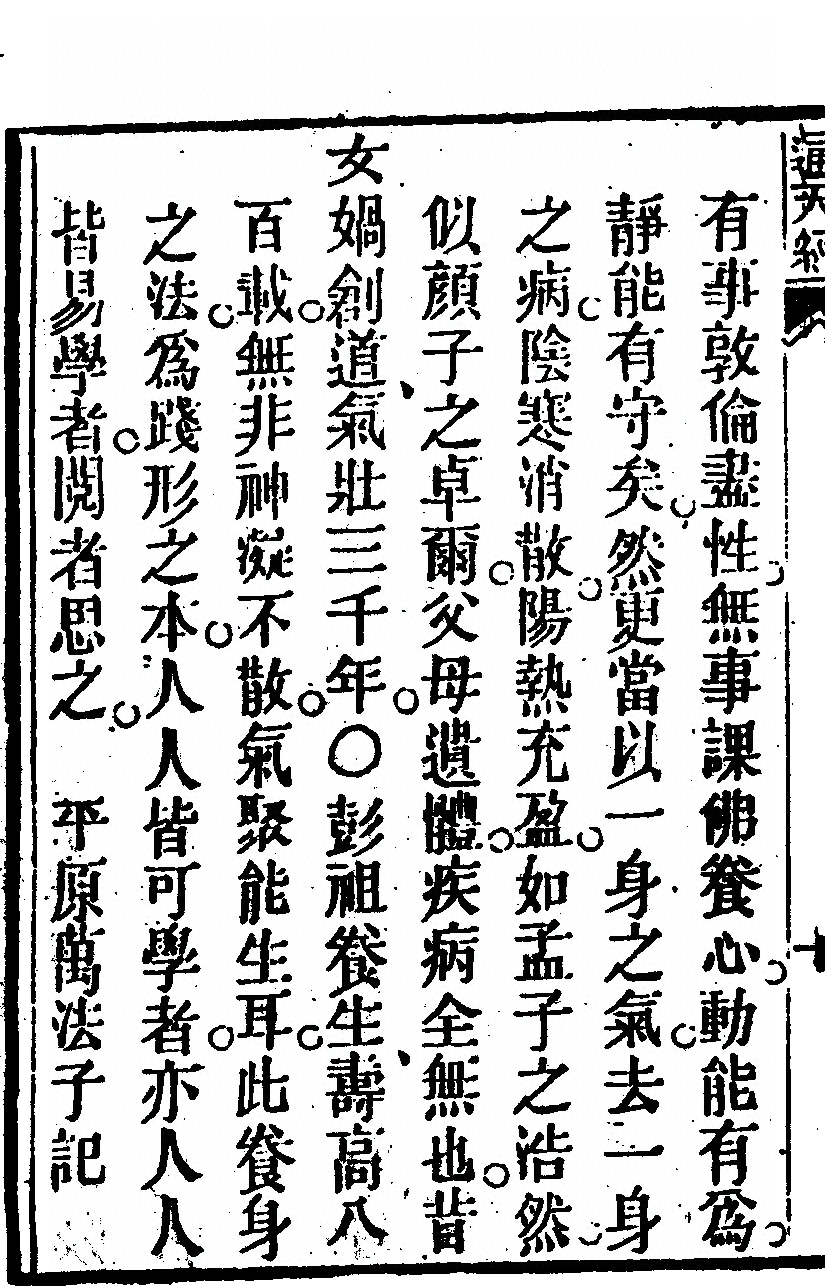 通天經
有事敦倫盡性無事課佛養心動能有爲
靜能有守矣然更當以一身之氣去一身
之病陰寒消散陽熱充盈如孟子之浩然
似顔子之卓爾父母遺體疾病全無也昔
女媧創道氣壯三千年〇彭祖養生壽高八
百載無非神凝不散氣聚能生耳此養身
之法爲踐形之本人人皆可學者亦人人
皆易學者閱者思之　平原萬法子記